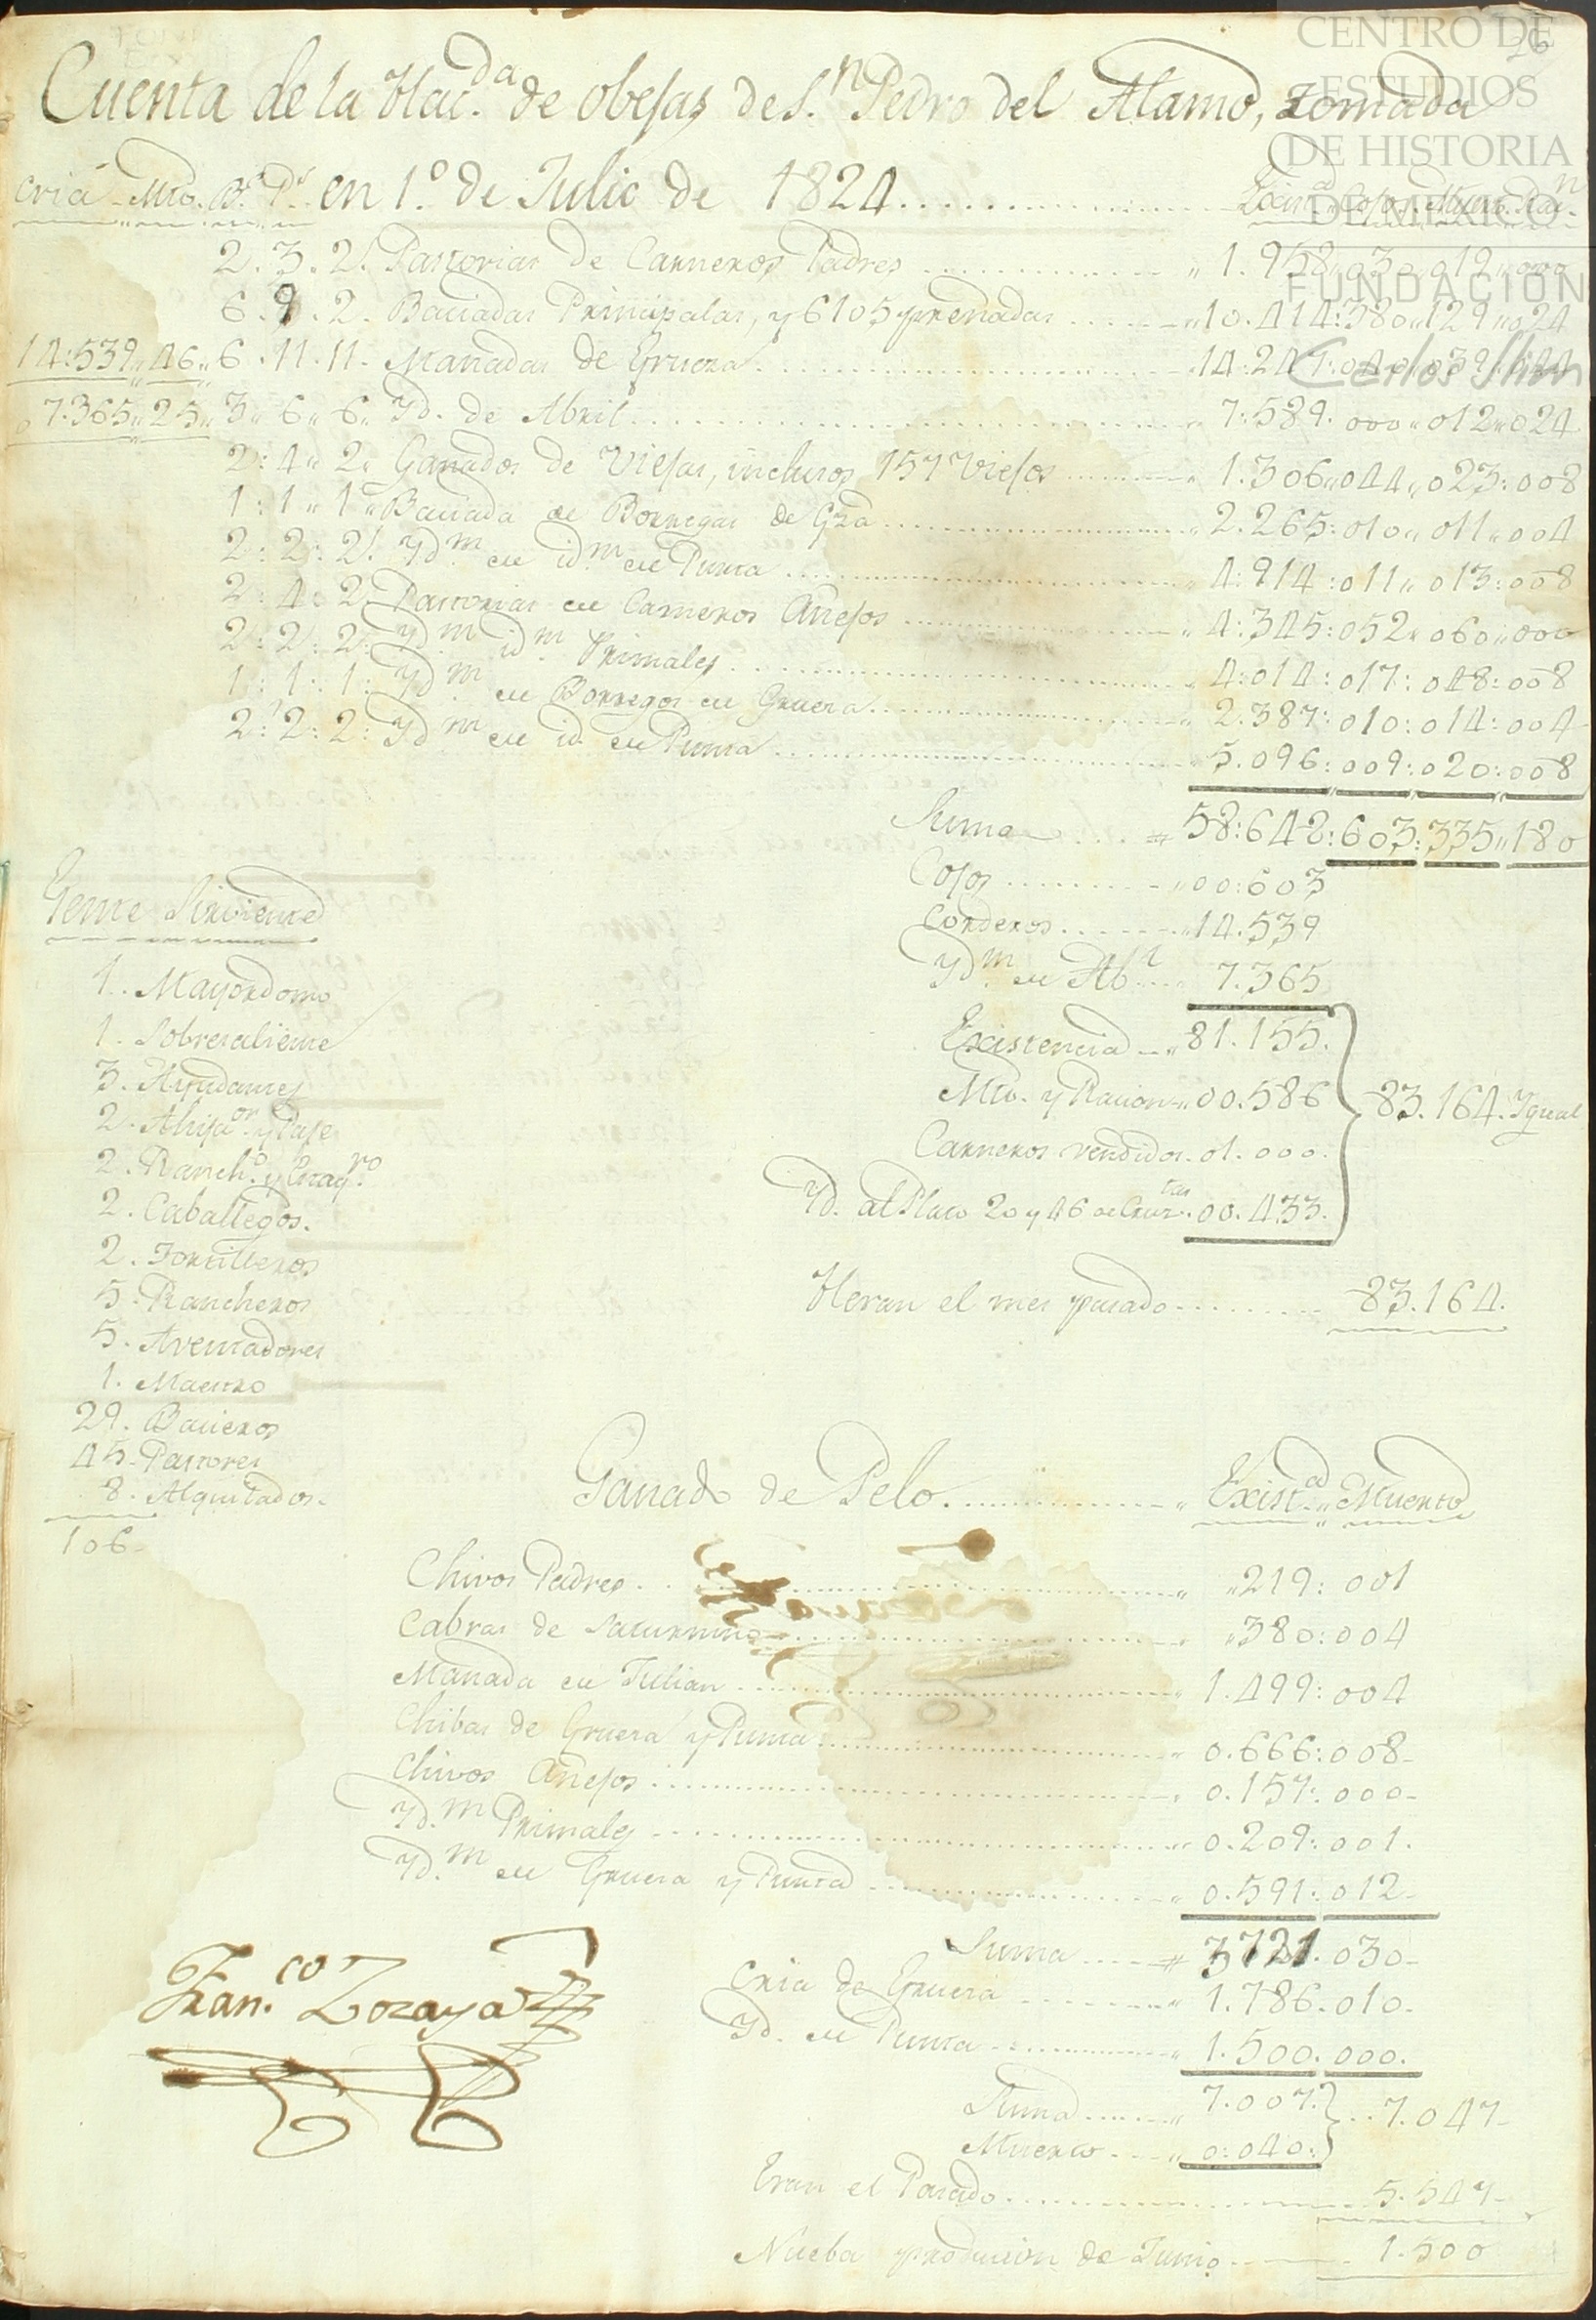 26
CENTRO DE
ESTUDIOS
DE HISTORIA
DE MEXICO
FUNDACION
Carlos Slim
Cuenta de la Hac.da de obejas de S.n Pedro del Alamo, tomada
cria Mto. B.s P.s en 1.º de Julio de 1824 Exist.a Cojos Muerto Rac.n
2. 3. 2. Pastorias de Carneros Padres 1.958 030 019 000
6. 9. 2. Baciadas Principalas, y 6105 preñadas 10.414:380 129 024
14:539 46 6. 11. 11. Manadas de Grueza 14:247:040 039
7.365 25 3 6 6 Yd. de Abril 7:589. 000 012 024
2: 4 2 Ganados de Viejas, inclusos 157 Viejos 1.306 044 023:008
1: 1 1 Baciada de Borregas de Gza 2.265:010 011 004
2: 2: 2: Yd.m de id.m de Punta 4:914:011 013:008
2: 4 2 Pastorias de Carneros Añejos 4:345:052 060 000
2: 2: 2: Yd.m id.m Primales 4:014:017:048:008
1: 1: 1: Yd.m de Borregos de Grueza 2.387:010:014:004
2: 2: 2: Yd.m de id. de Punta 5.096:009:020:008
Suma 58:642:603:335 180
Cojos 00:603
Corderos 14.539
Yd.m de Ab.l 7.365
Existencia 81.155.
Mto. y Racion 00.586 83.164. Ygual
Carneros vendidos 01.000.
Yd. al Placo 20 y 46 de Cruz.tas 00.433.
Heran el mes pasado 83.164.
Gente Sirviente
1. Mayordomo
1. Sobresaliente
3. Ayudantes
2. Ahija.or y Paje
2. Ranch.o y
2. Caballegos.
2. Tortilleros
5. Rancheros
5. Aventadores
1. Maestro
29. Bacieros
45. Pastores
8. Alquilados.
106.
Ganado de Pelo. Exist.a Muerto
Chivos Padres 219: 001
Cabras de Saturnino 380:004
Manada de Julian 1.499:004
Chibas de Grueza y Punta 0.666:008
Chivos Añejos 0.157:000
Yd.m Primales 0.209:001.
Yd.m de Grueza y Punta 0.591:012
Suma 3721.030
Cria de Grueza 1.786.010
Yd. de Punta 1.500.000.
Suma 7.007. 7.047
Muerto 0:040.
Eran el Pasado 5.547
Nueba producion de Junio 1.500
Fran.co Lozaya